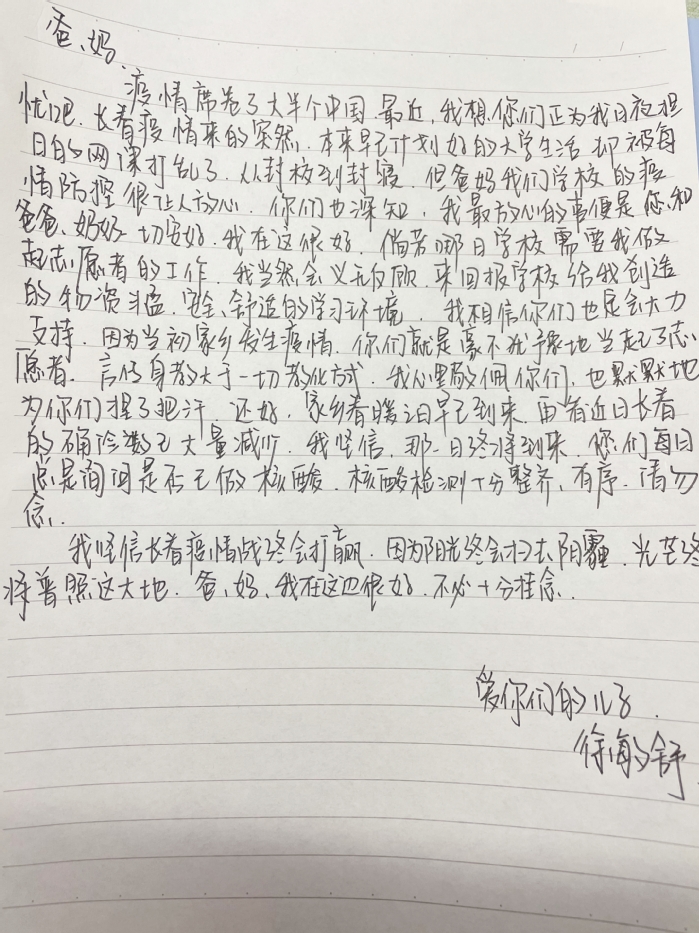 爸、妈、
疫情席卷了大半个中国,最近,我想,你们正为我日夜担
忧吧.长春疫情来的突然,本来早已计划好的大学生活却被每
日的网课打乱了.从封校到封寝,但爸妈我们学校的疫
情防控很让人放心.你们也深知,我最放心的事便是您和
爸爸、奶奶一切安好.我在这很好.倘若哪日学校需要我做
起志愿者的工作,我当然会义无反顾,来回报学校给我创造
的物资丰盛,安全、舒适的学习环境.我相信你们也是会大力
支持.因为当初家乡发生疫情,你们就是毫不犹予地当起了志
愿者.言传身教大于一切教化方式.我心里敬佩你们,也默默地
为你们捏了把汗.还好,家乡春暖之日早已到来,再看近日长春
的确诊数已大量减少.我坚信,那一日终将到来.您们每日
总是询问是否已做核酸.核酸检测十分整齐、有序.请勿
念.
我坚信长春疫情战终会打赢.因为阳光终会扫去阴霾.光芒终
将普照这大地.爸、妈、我在这边很好.不必十分挂念.
爱你们的儿子.
徐海舒